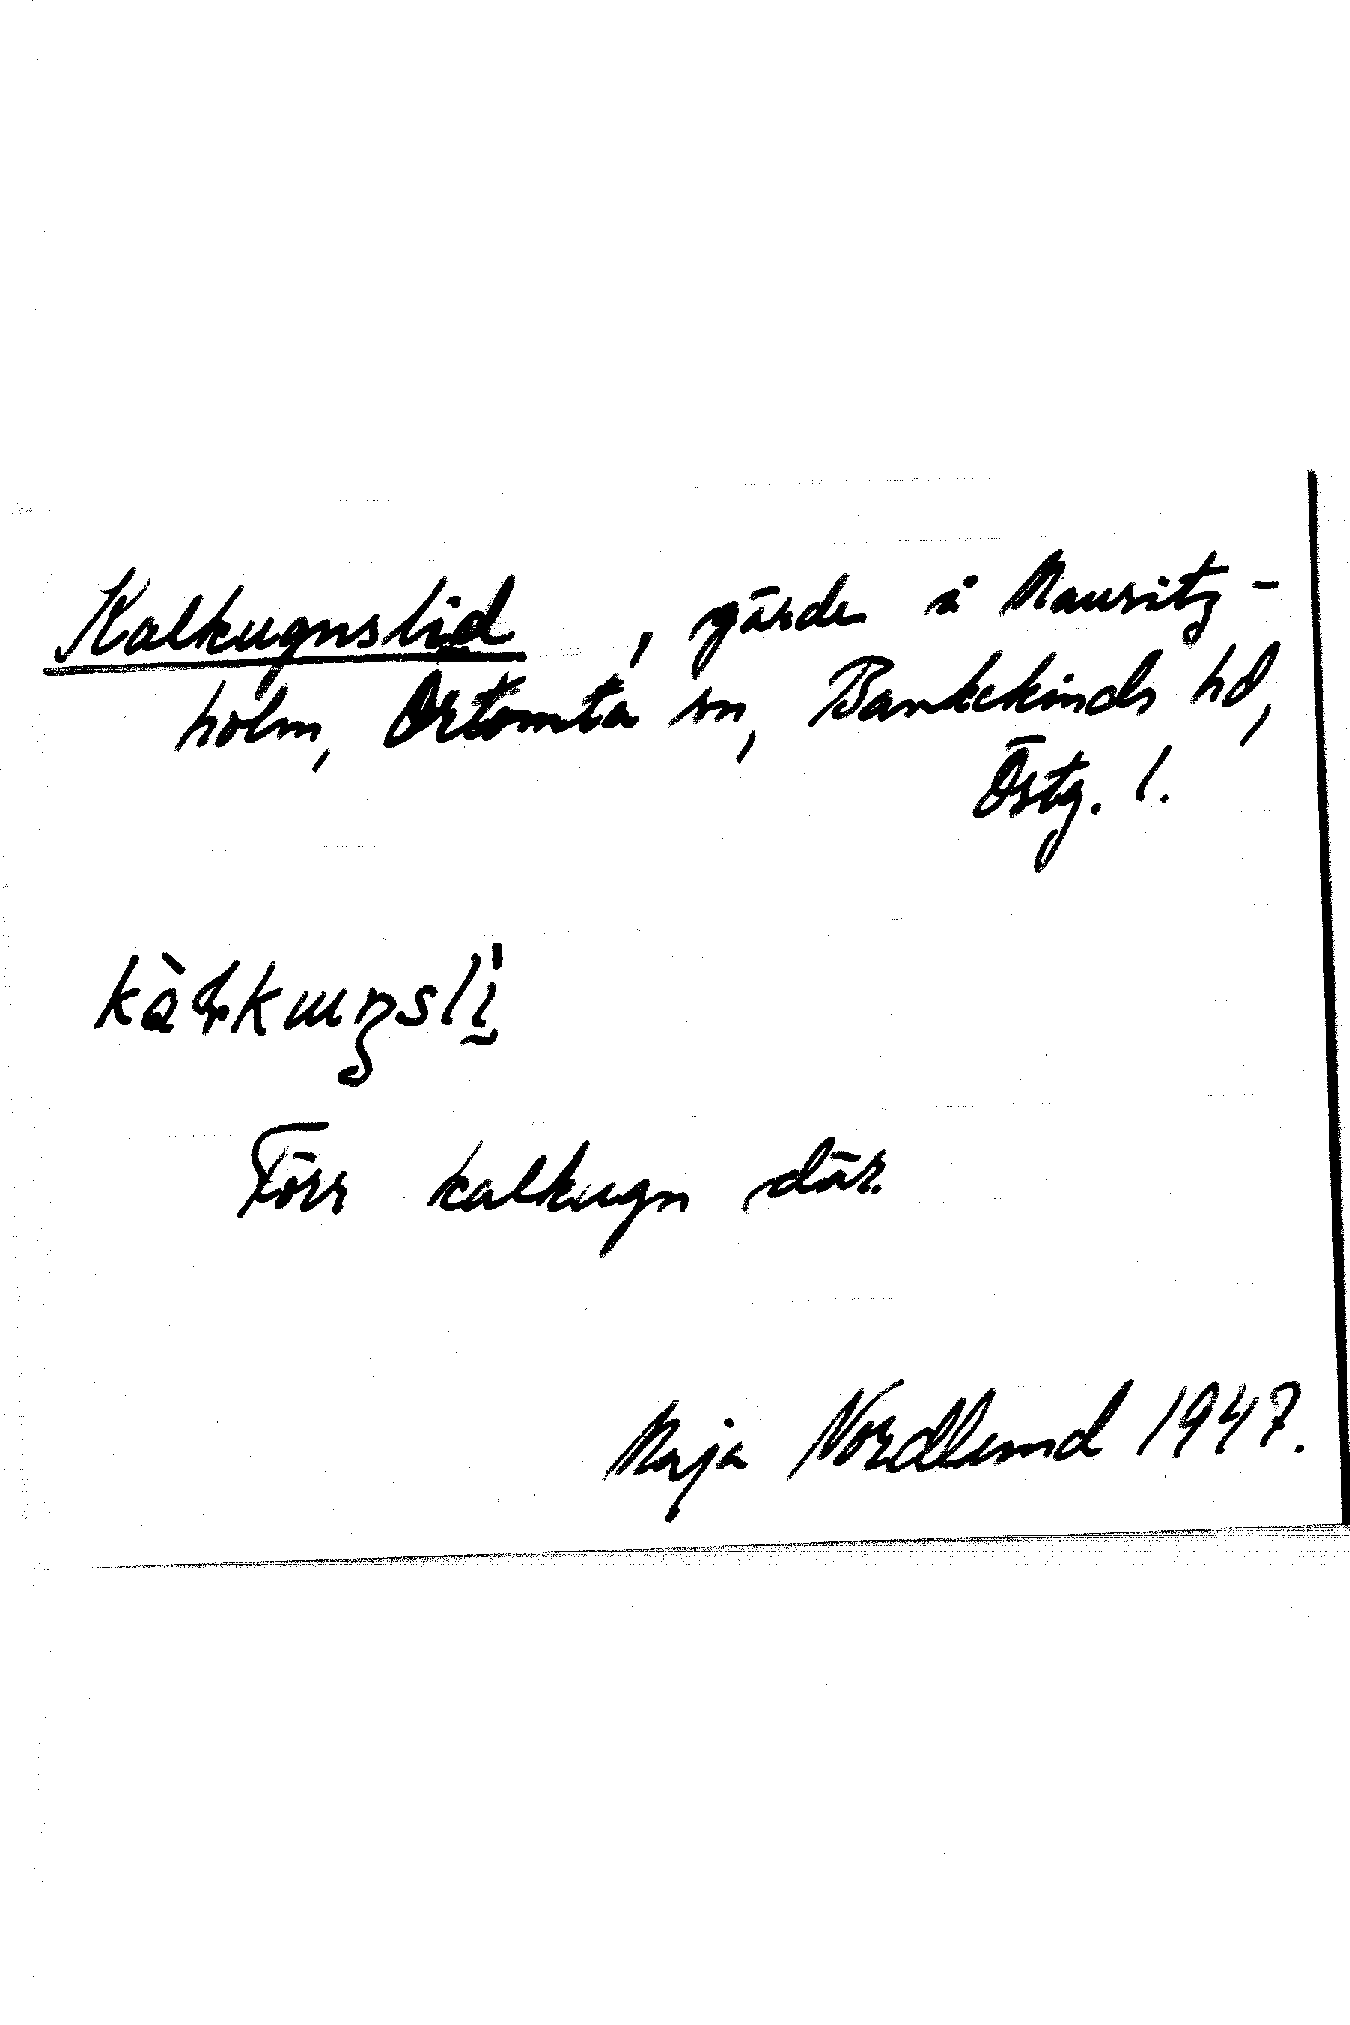 Kalkugnslid, gärde å Mauritz-
holm, Örtomta sn, Bankekinds hd,
Östg. l.
Förr kalkugn där.
Maja Nordlund 1947.